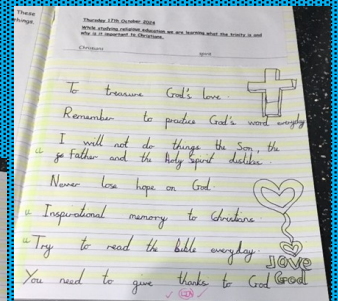 These
things.
Thursday 17th October 2024
While studying religious education we are learning what the trinity is and
why is it important to Christians.
Christians
To treasure God's love.
Remember to practice God's word everyday
I will not do things the Son, the
Father and the Holy Spirit dislike
Never lose hope on God.
Inspirational memory to Christians
Try to read the bible everyday.
You need to give thanks to God
love
God